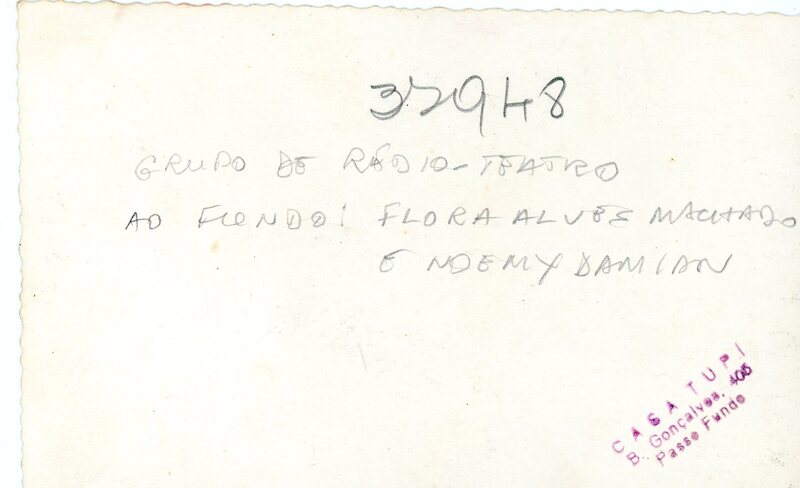 37948
GRUPO DE RÁDIO-TEATRO
AO FUNDO: FLORA ALVES MACHADO
E NOEMY DAMIAN
CASA TUPI
B. Gonçalves, 405
Passo Fundo